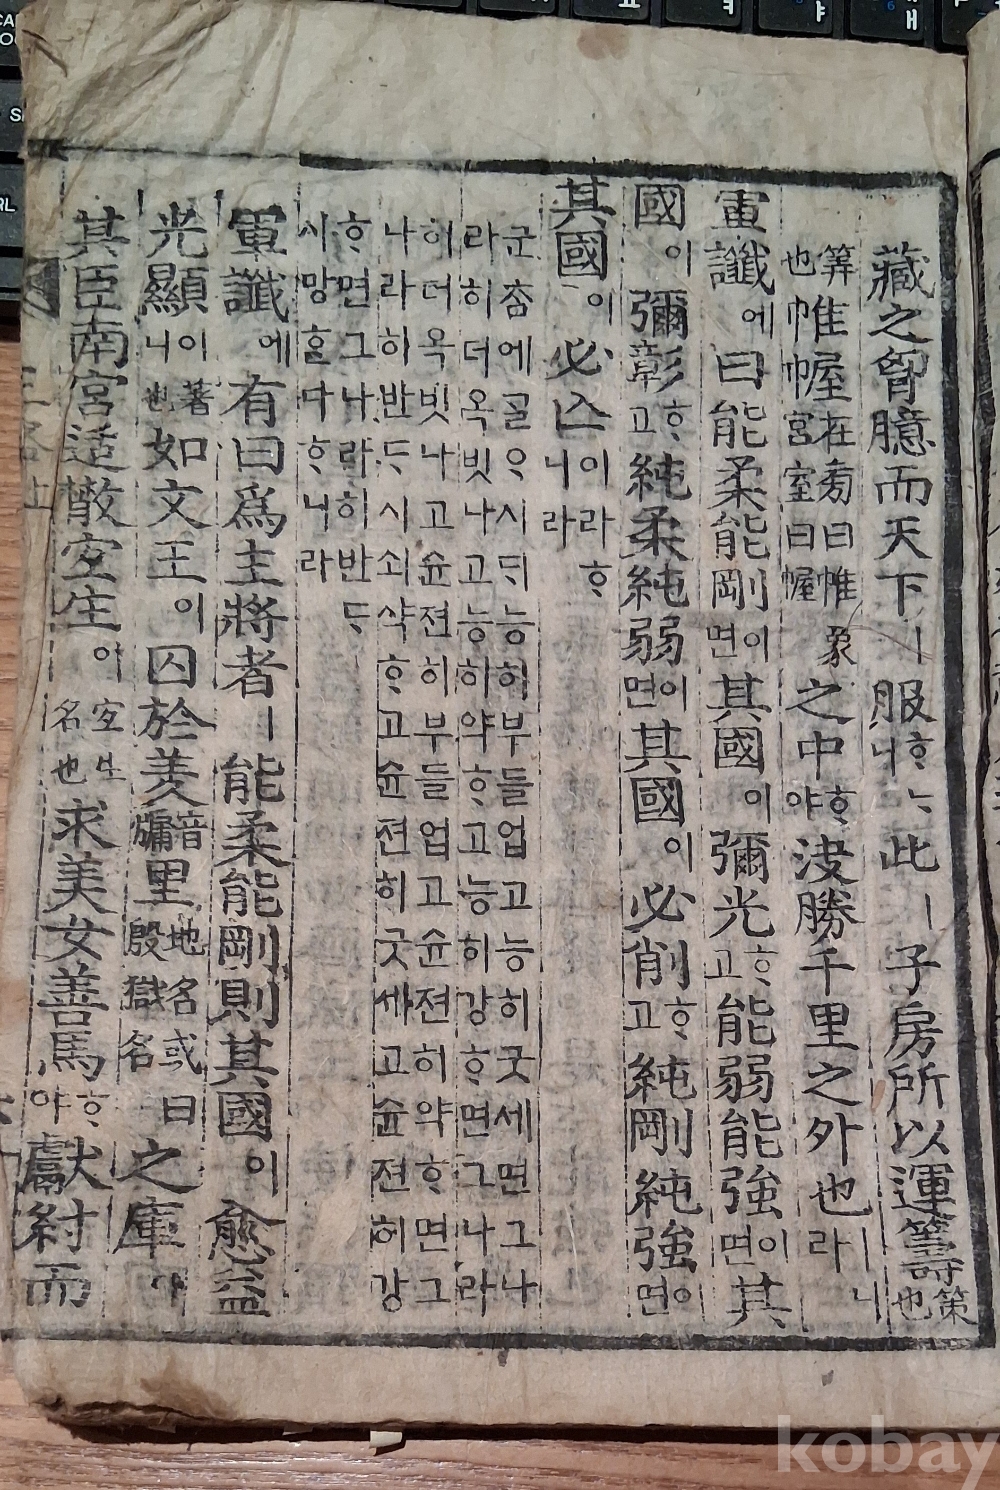 藏之胷臆而天下ㅣ服ᄒᆞᄂᆞ니此ㅣ子房所以運籌策也
筭帷幄在旁曰帷象也帷幄宮室曰幄之中ᄒᆞ야決勝千里之外也ㅣ니라
軍讖에曰能柔能剛이면其國이彌光ᄒᆞ고能弱能強이면其
國이彌彰ᄒᆞ고純柔純弱이면其國이必削ᄒᆞ고純剛純強이면
其國이必亡이라ᄒᆞ니라
군참에골ᄋᆞ시ᄃᆡ능히부들업고능히굿세면그나
라히더옥빗나고능히약ᄒᆞ고능히강ᄒᆞ면그나라
히더옥빗나고슌젼히부들업고슌젼히약ᄒᆞ면그
나라히반ᄃᆞ시쇠삭ᄒᆞ고슌젼히굿세고슌젼히강
ᄒᆞ면그나라히반ᄃᆞ
시망ᄒᆞᆯ다ᄒᆞ니라
軍讖에有曰爲主將者ㅣ能柔能剛則其國이愈益
光顯이니著也如文王이囚於羑音牖里地名或曰殷獄名之庫ㅣ야
其臣南宮适散宜生이宜生名也求美女善馬ᄒᆞ야獻紂而
kobay